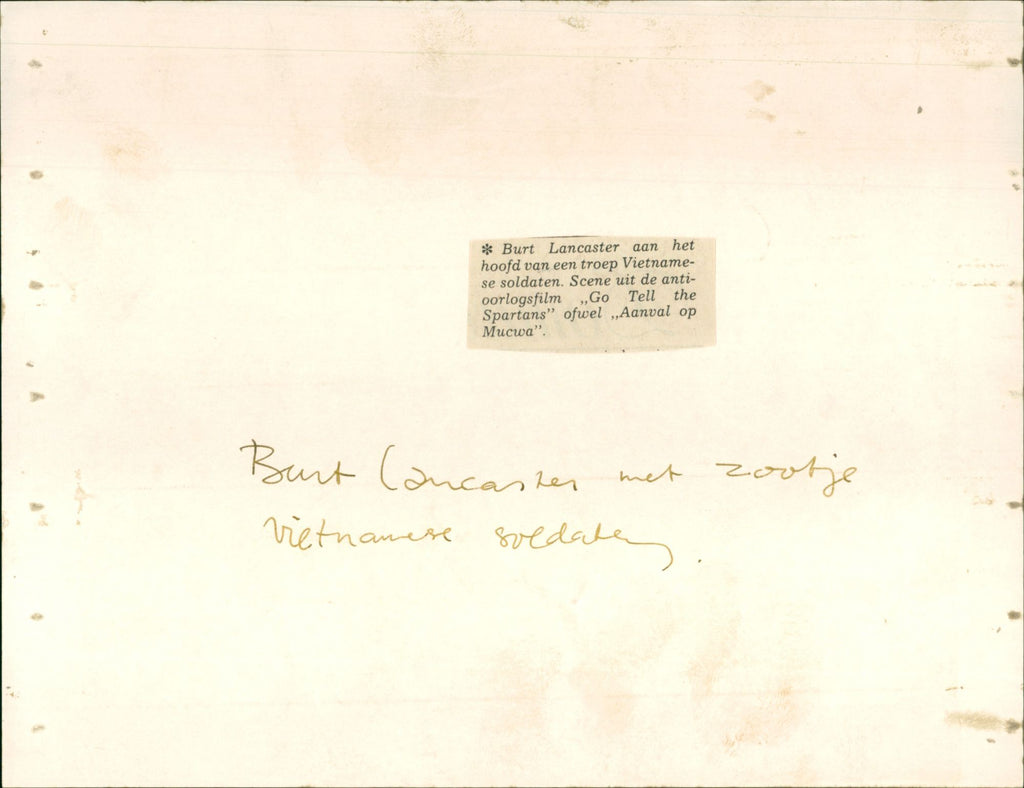 ✻ Burt Lancaster aan het
hoofd van een troep Vietname-
se soldaten. Scene uit de anti-
oorlogsfilm „Go Tell the
Spartans” ofwel „Aanval op
Mucwa”.
Burt Lancaster met zootje
Vietnamese soldaten.